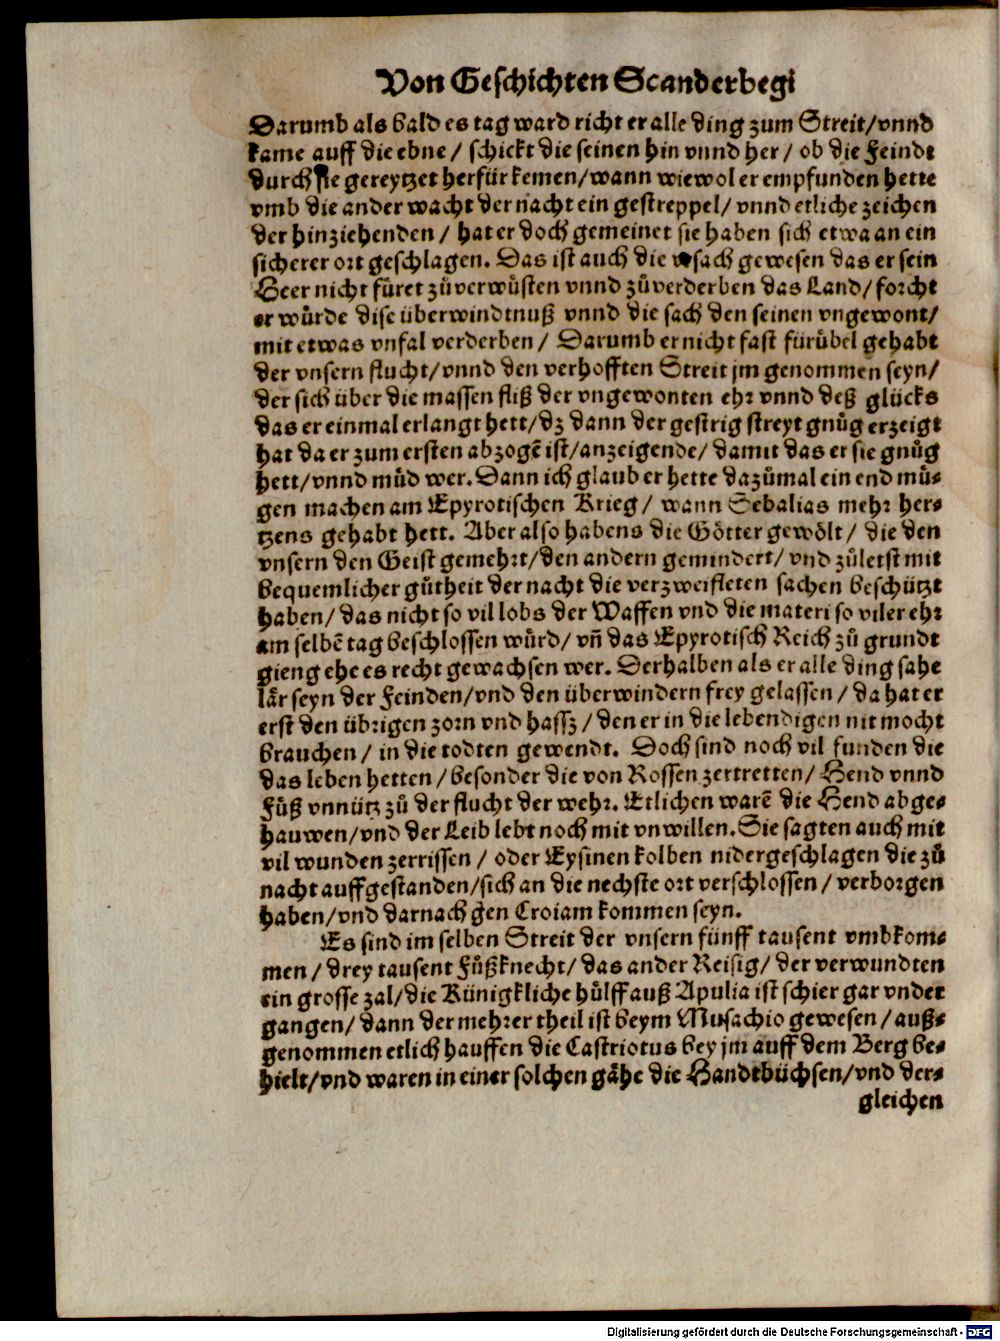 Von Geschichten Scanderbegi
Darumb als bald es tag ward richt er alle ding zum Streit/vnnd
kame auff die ebne / schickt die seinen hin vnnd her / ob die Feindt
durch sie gereytzet herfür kemen/wann wiewol er empfunden hette
vmb die ander wacht der nacht ein gestreppel/ vnnd etliche zeichen
der hinziehenden / hat er doch gemeinet sie haben sich etwa an ein
sicherer ort geschlagen. Das ist auch die vrsach gewesen das er sein
Heer nicht füret zůverwüsten vnnd zůverderben das Land/ forcht
er würde dise überwindtnuß vnnd die sach den seinen vngewont/
mit etwas vnfal verderben / Darumb er nicht fast fürübel gehabt
der vnsern flucht/vnnd den verhofften Streit jm genommen seyn/
der sich über die massen fliß der vngewonten ehr vnnd deß glücks
das er einmal erlangt hett/dz dann der gestrig streyt gnůg erzeigt
hat da er zum ersten abzogē ist/anzeigende/ damit das er sie gnůg
hett/vnnd müd wer. Dann ich glaub er hette dazůmal ein end mü-
gen machen am Epyrotischen Krieg / wann Sebalias mehr her-
tzens gehabt hett. Aber also habens die Götter gewölt/ die den
vnsern den Geist gemehrt/den andern gemindert/ vnd zůletst mit
bequemlicher gůtheit der nacht die verzweifleten sachen beschützt
haben/ das nicht so vil lobs der Waffen vnd die materi so viler ehr
am selbē tag beschlossen würd/ vñ das Epyrotisch Reich zů grundt
gieng ehe es recht gewachsen wer. Derhalben als er alle ding sahe
lär seyn der Feinden/vnd den überwindern frey gelassen / da hat er
erst den übrigen zorn vnd hassz / den er in die lebendigen nit mocht
brauchen / in die todten gewendt. Doch sind noch vil funden die
das leben hetten / besonder die von Rossen zertretten/ Hend vnnd
Füß vnnütz zů der flucht der wehr. Etlichen warē die Hend abge-
hauwen/vnd der Leib lebt noch mit vnwillen. Sie sagten auch mit
vil wunden zerrissen / oder Eysinen kolben nidergeschlagen die zů
nacht auffgestanden/sich an die nechste ort verschlossen / verborgen
haben/vnd darnach gen Croiam kommen seyn.
Es sind im selben Streit der vnsern fünff tausent vmbkom-
men / drey tausent Fůßknecht/ das ander Reisig/ der verwundten
ein grosse zal/die Künigkliche hülff auß Apulia ist schier gar vnder
gangen/ dann der mehrer theil ist beym Musachio gewesen / auß-
genommen etlich hauffen die Castriotus bey jm auff dem Berg be-
hielt/vnd waren in einer solchen gähe die Handtbüchsen/vnd der-
gleichen
Digitalisierung gefördert durch die Deutsche Forschungsgemeinschaft - DFG